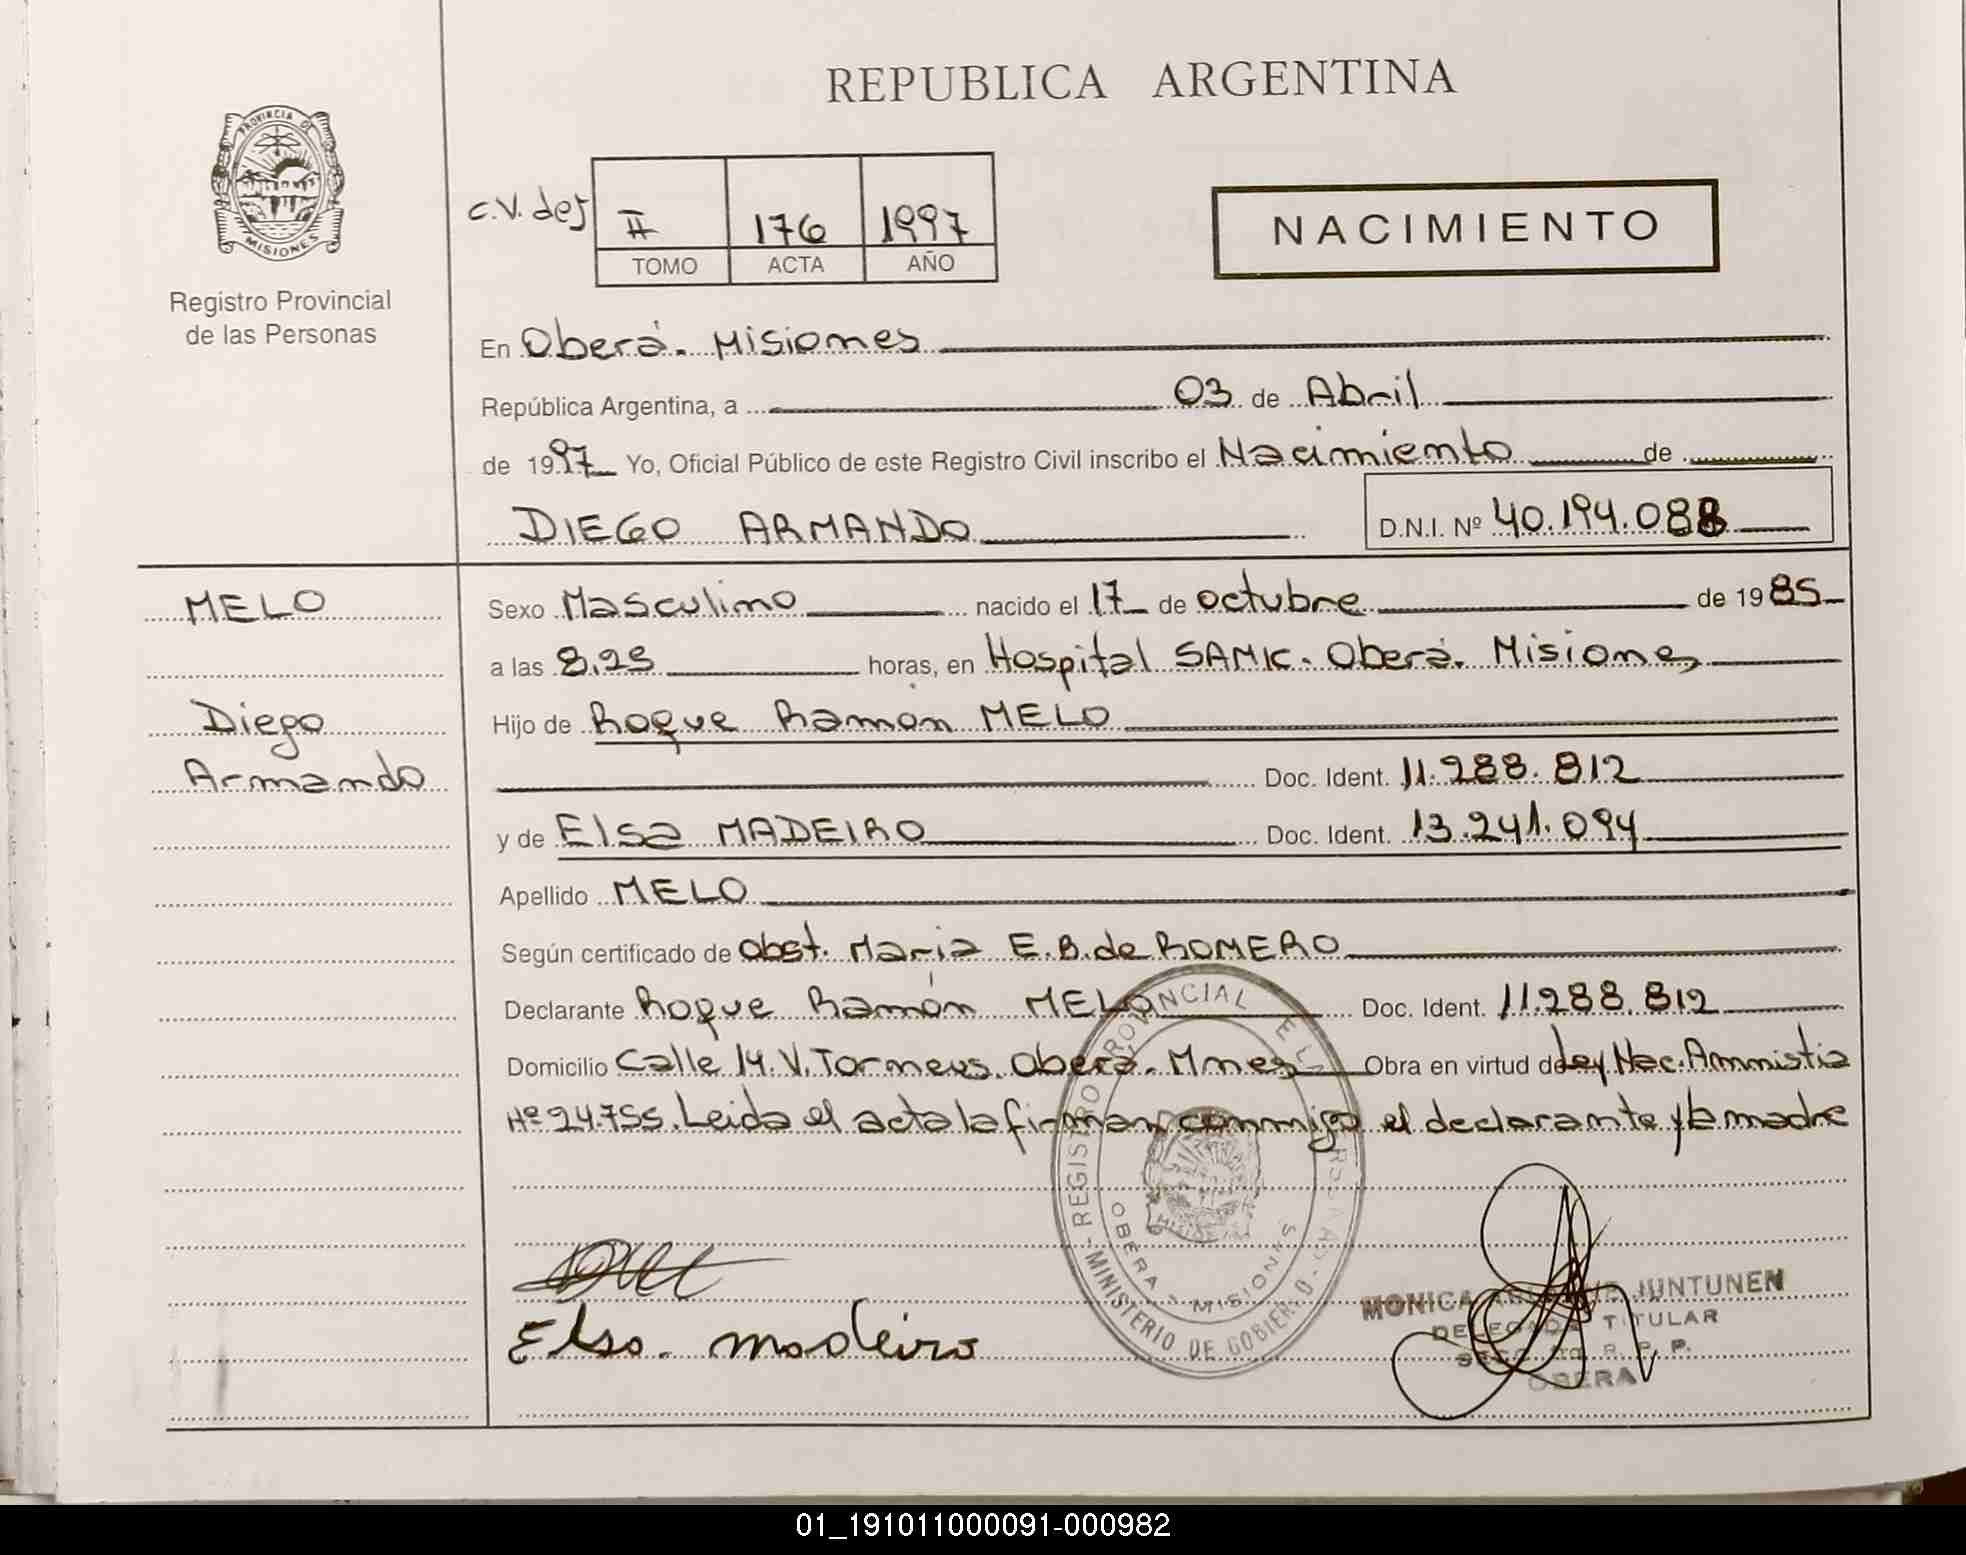 REPUBLICA ARGENTINA
PROVINCIA DE
MISIONES
Registro Provincial
de las Personas
C.V. dej
II 176 1997
TOMO ACTA AÑO
NACIMIENTO
En Oberá. Misiones
República Argentina, a 03 de Abril
de 1997 Yo, Oficial Público de este Registro Civil inscribo el Nacimiento de
DIEGO ARMANDO D.N.I. Nº 40.194.088
MELO
Diego
Armando
Sexo Masculino nacido el 17 de octubre de 1985
a las 8.25 horas, en Hospital SAMIC. Oberá. Misiones
Hijo de Roque Ramón MELO
Doc. Ident. 11.288.812
y de Elsa MADEIRO Doc. Ident. 13.241.094
Apellido MELO
Según certificado de Obst. Maria E.B. de ROMERO
Declarante Roque Ramón MELO Doc. Ident. 11.288.812
Domicilio Calle 14. V. Torneus. Oberá. Mnes Obra en virtud de Ley Nac. Amnistia
Nº 24.755. Leida el acta la firman conmigo el declarante y la madre
REGISTRO PROVINCIAL DE LAS PERSONAS
MINISTERIO DE GOBIERNO
OBERA - MISIONES
Elsa. Madeiro
MONICA JUNTUNEN
DELEGADA TITULAR
R. P. P.
OBERA
01_191011000091-000982